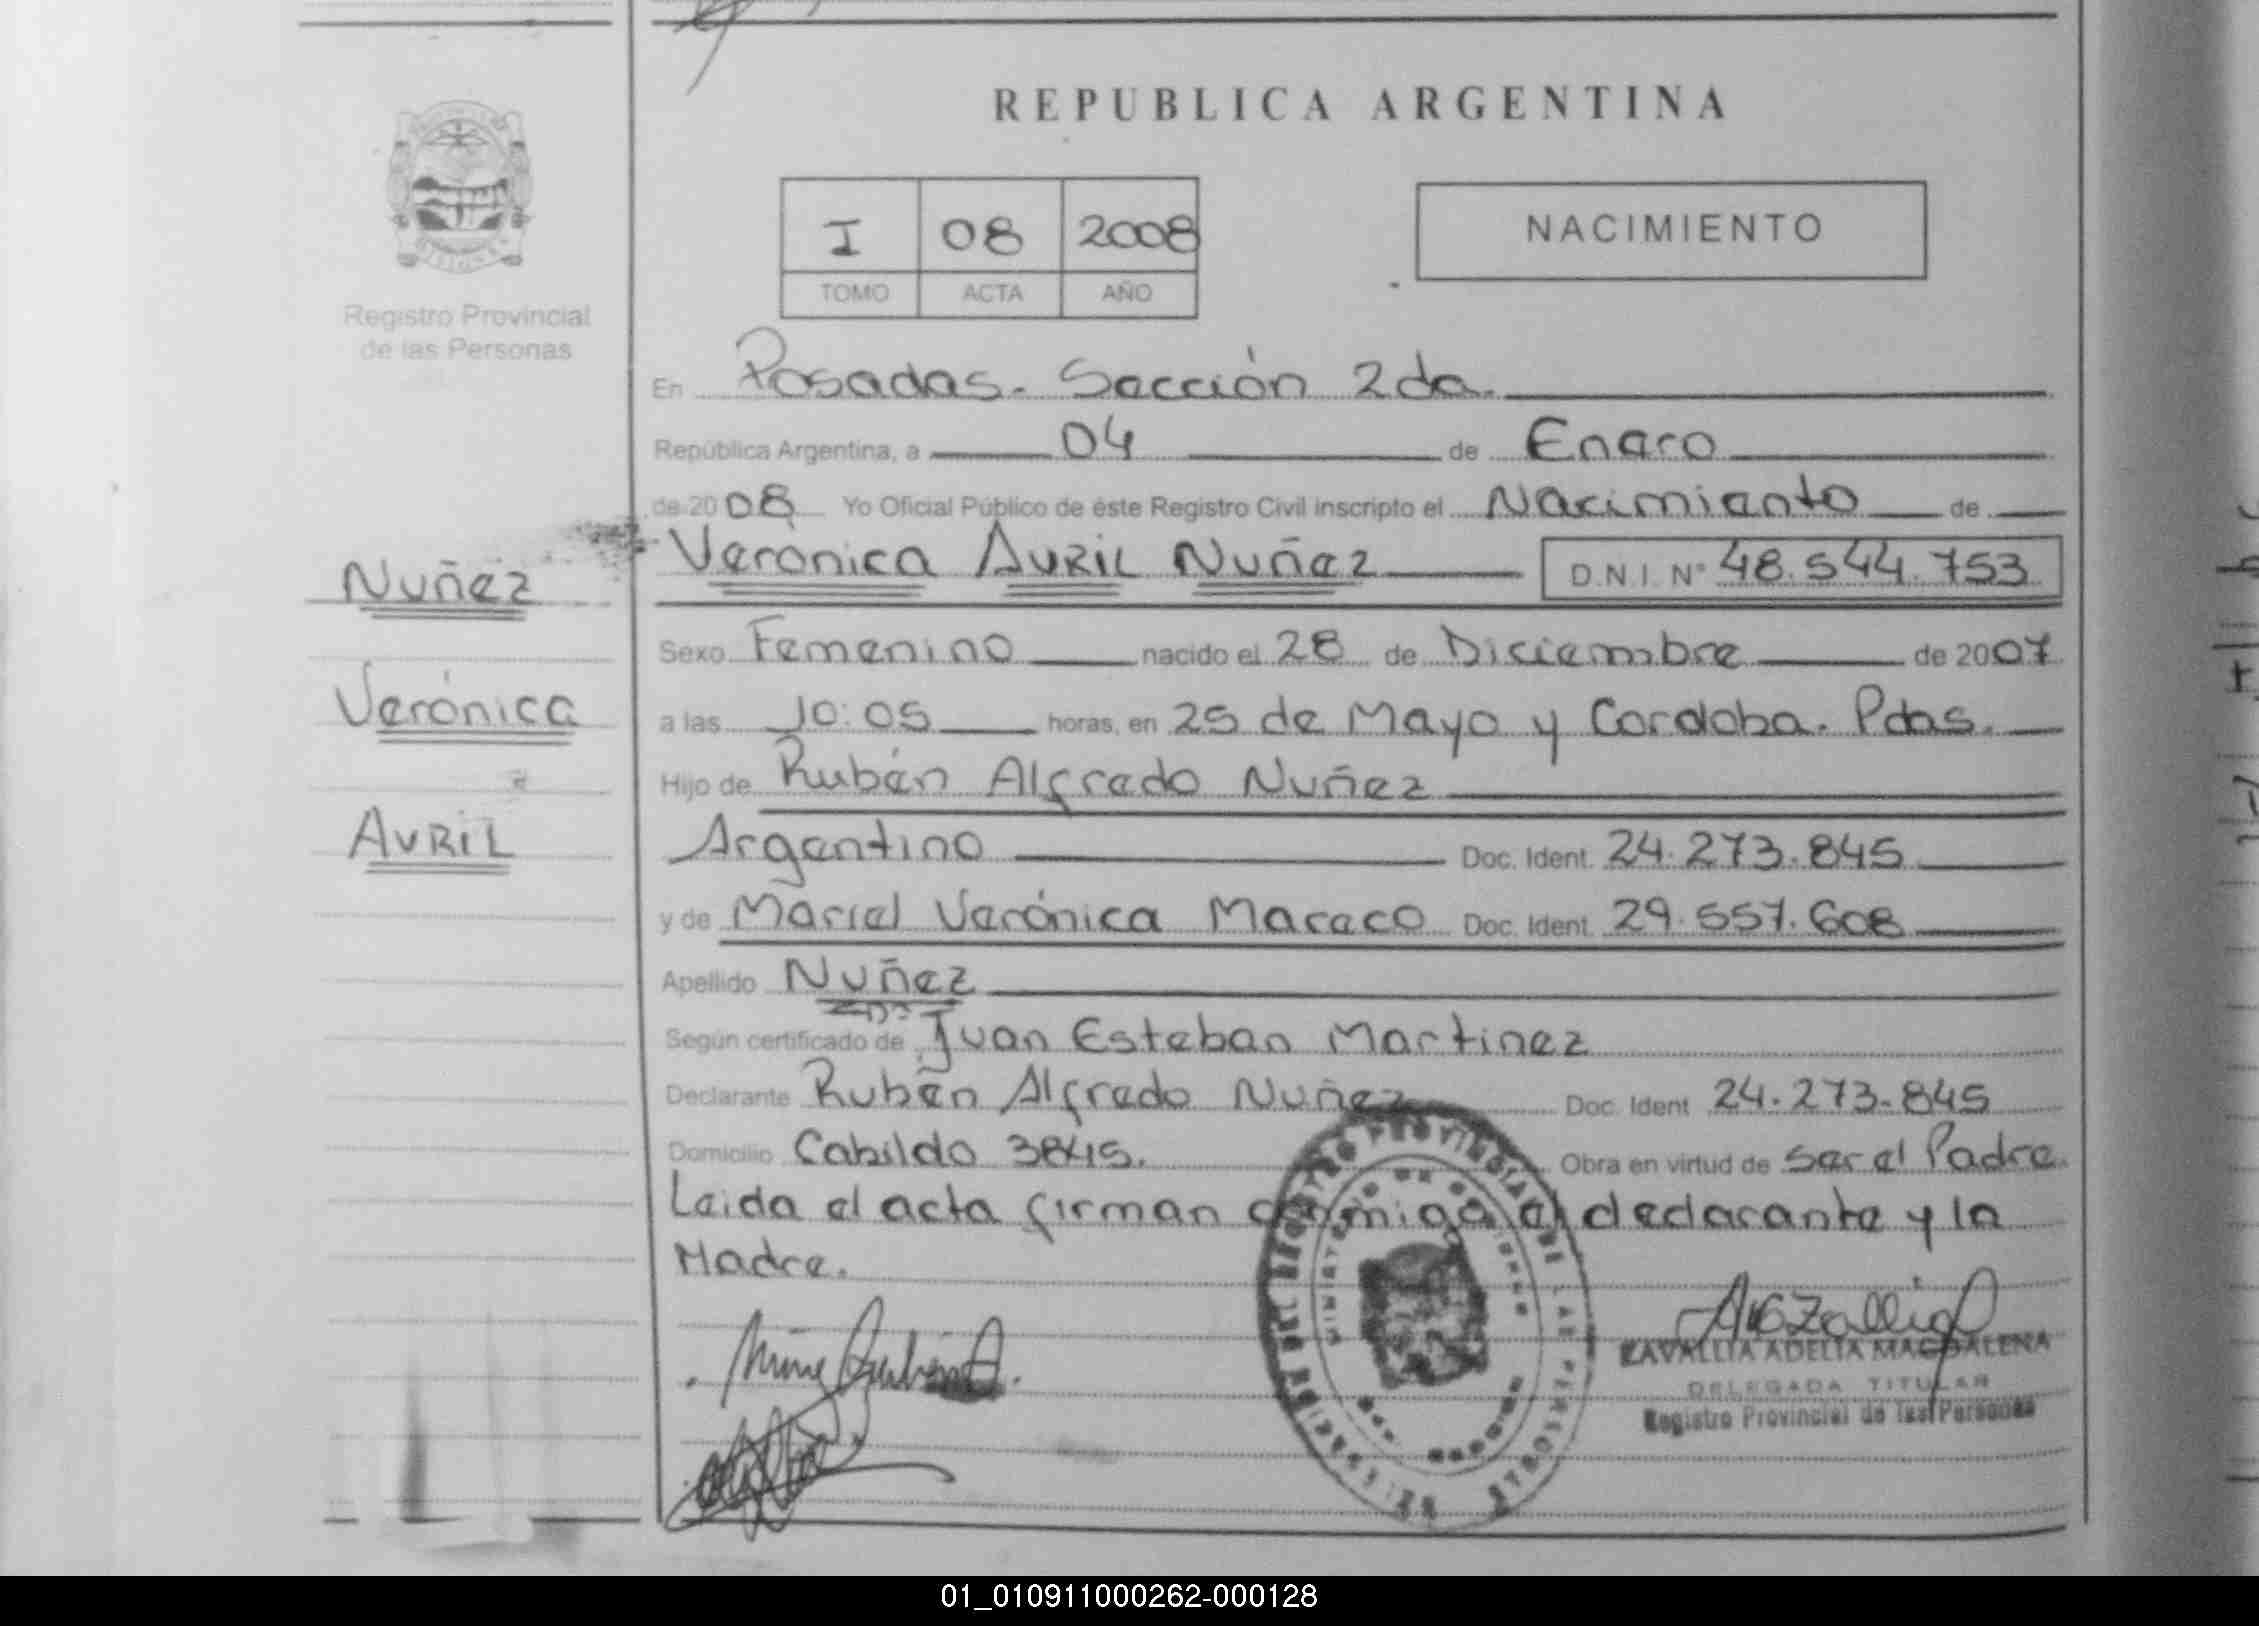 REPUBLICA ARGENTINA
I 08 2008
TOMO ACTA AÑO
NACIMIENTO
Registro Provincial
de las Personas
En Posadas. Sección 2da.
República Argentina, a 04 de Enero
de 2008 Yo Oficial Público de éste Registro Civil inscripto el Nacimiento de
Verónica AVRIL Nuñez D.N.I. N° 48.544.753
Nuñez
Verónica
AVRIL
Sexo Femenino nacido el 28 de Diciembre de 2007
a las 10:05 horas, en 25 de Mayo y Cordoba. Pdas.
Hijo de Rubén Alfredo Nuñez
Argentino Doc. Ident. 24.273.845
y de Mariel Verónica Mareco Doc. Ident. 29.557.608
Apellido Nuñez
Según certificado de Juan Esteban Martinez
Declarante Rubén Alfredo Nuñez Doc. Ident. 24.273.845
Domicilio Cabildo 3845. Obra en virtud de ser el Padre.
Leida el acta firman conmigo el declarante y la
Madre.
REGISTRO PROVINCIAL DE LAS PERSONAS
MINISTERIO DE GOBIERNO
ADELIA MAGDALENA
DELEGADA TITULAR
Registro Provincial de las Personas
01_010911000262-000128